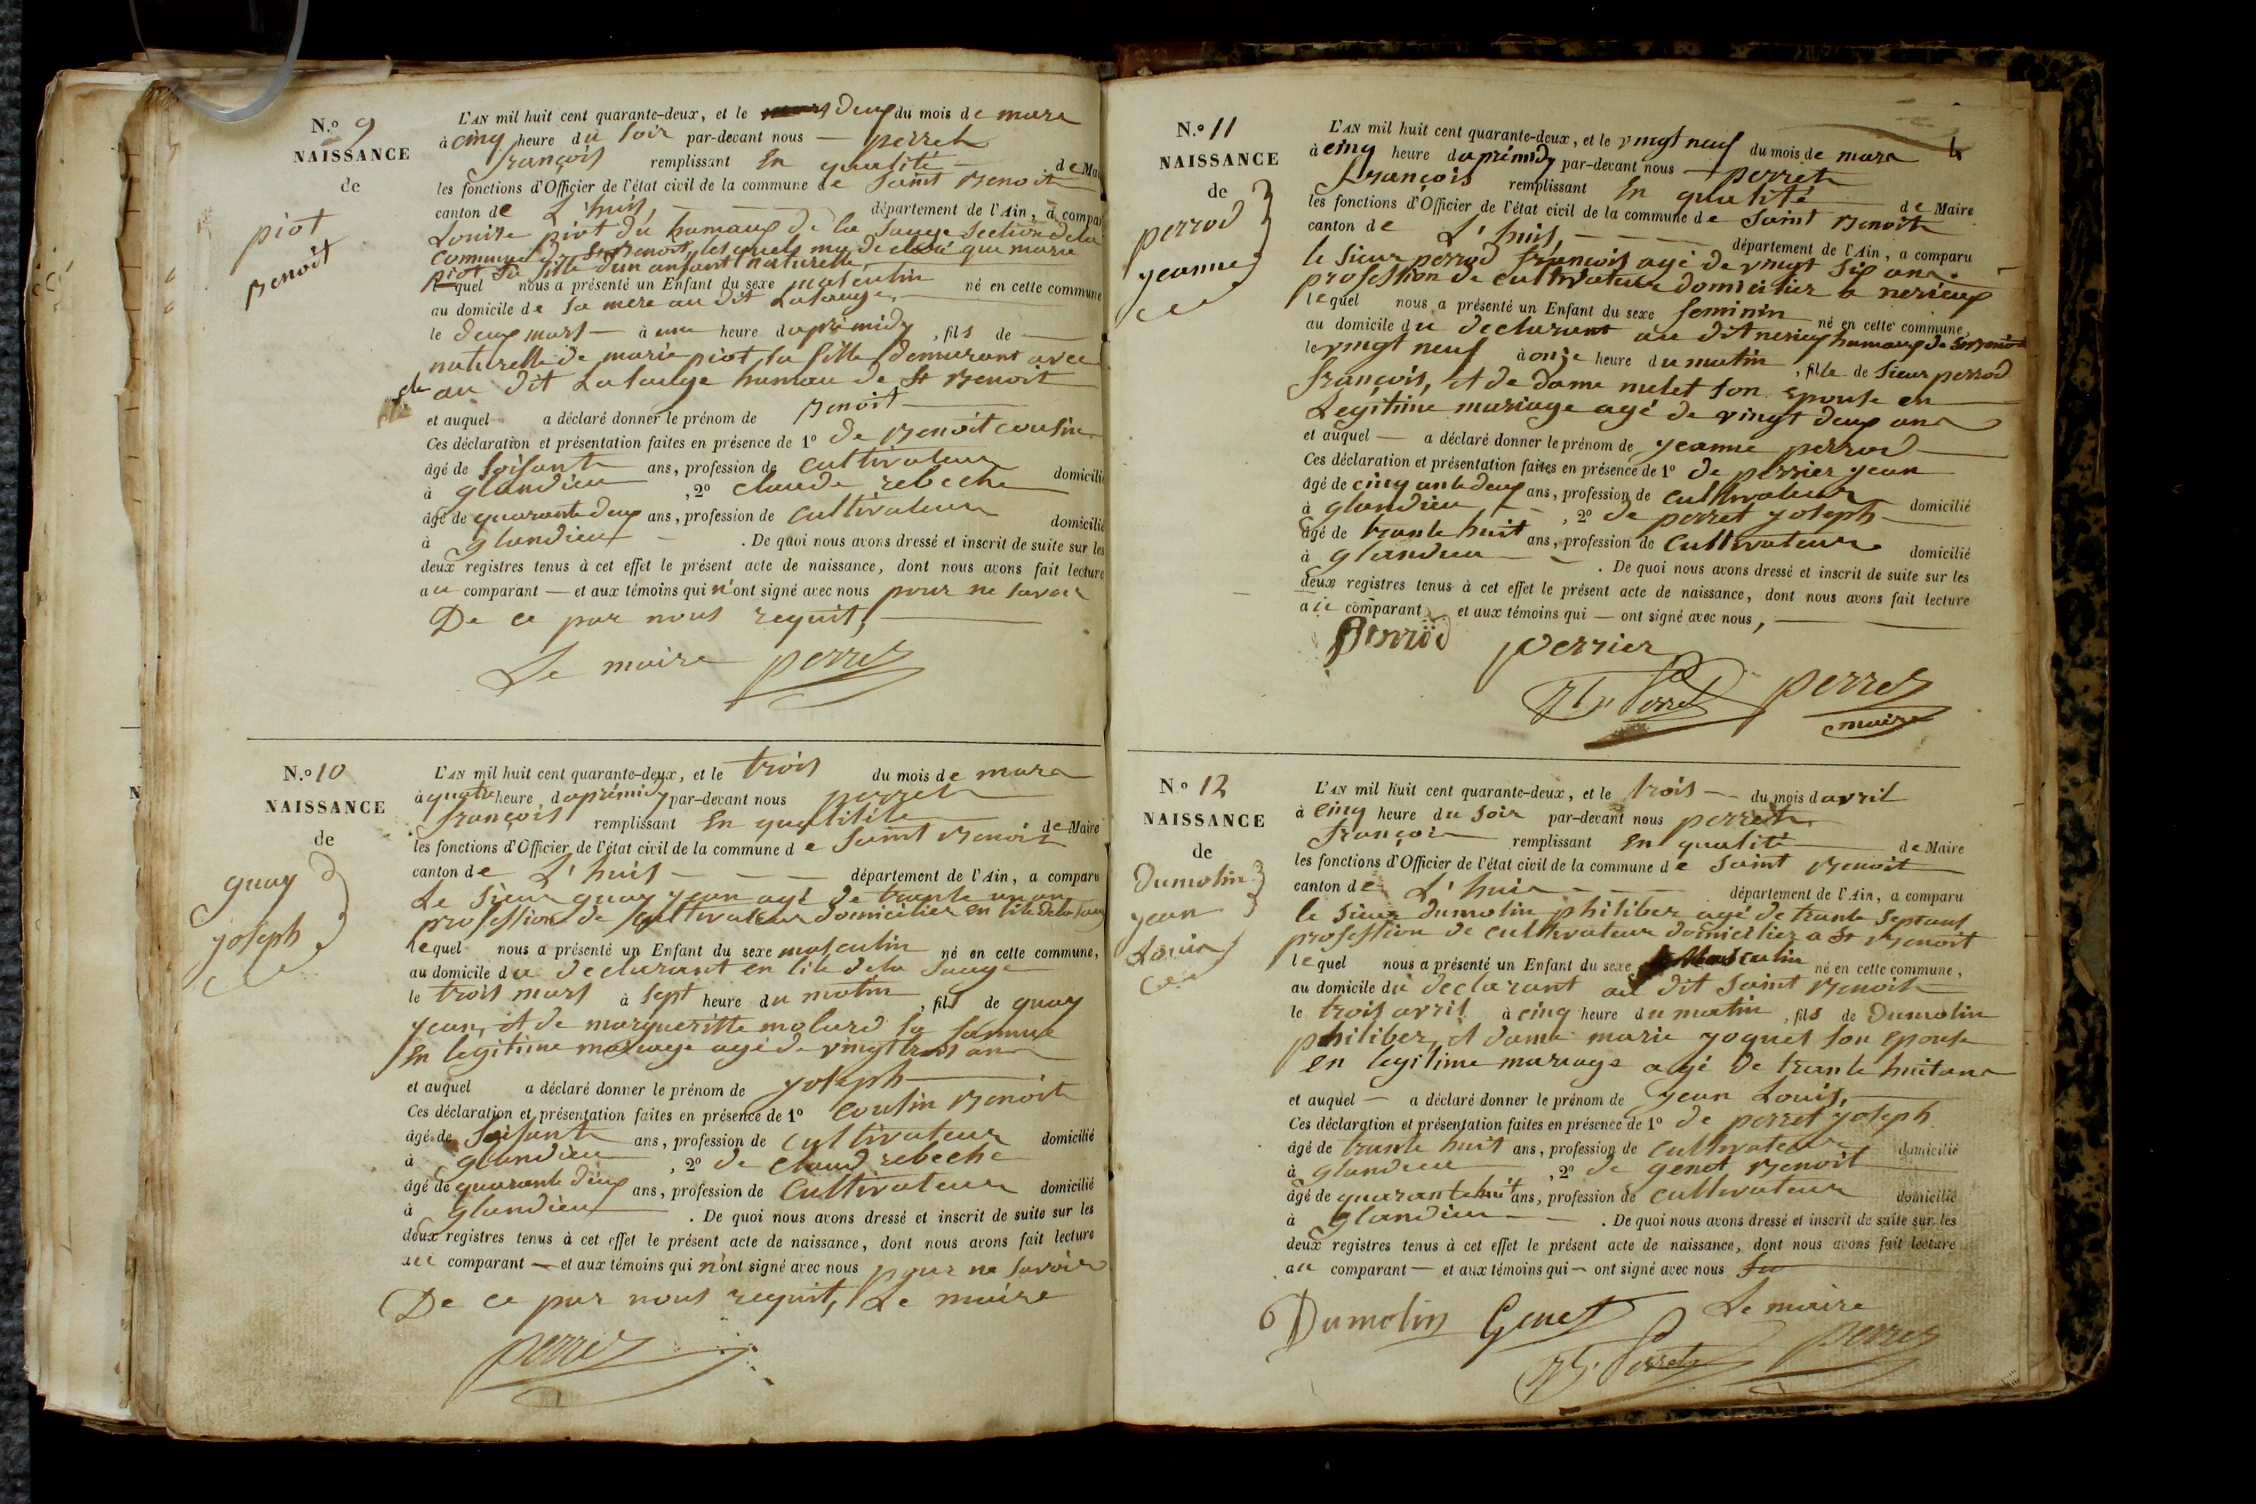 N.º 9
NAISSANCE
de
piot
Benoit
L'AN mil huit cent quarante-deux, et le deux du mois de mars
à cinq heure du soir par-devant nous — perret
françois remplissant En qualité — de Ma
les fonctions d'Officier de l'état civil de la commune de Saint Benoit
canton de L'huis, — département de l'Ain, a compar
Louise piot du hamaux de la Sauge Section dela
Commune de St Benoit, lesquels my declaré que marie
piot Sa fille d'un anfant naturelle
lequel nous a présenté un Enfant du sexe masculin né en cette commune
au domicile de sa mere au dit Lasauge,
le deux mars — à une heure daprémidy, fils de —
naturelle de marie piot, sa fille demurant avec
elle au dit Lasauge hamau de St Benoit
et auquel a déclaré donner le prénom de Benoit —
Ces déclaration et présentation faites en présence de 1º de Benoit cousin
âgé de soisante ans, profession de cultivateur domicilié
à glandieu — , 2º claude rebeche
âgé de quarante deux ans, profession de cultivateur domicilié
à glandieu — . De quoi nous avons dressé et inscrit de suite sur les
deux registres tenus à cet effet le présent acte de naissance, dont nous avons fait lecture
au comparant — et aux témoins qui n'ont signé avec nous pour ne savoir
De ce par nous requit, —
Le maire perret
N.º 10
NAISSANCE
de
guay
joseph
L'AN mil huit cent quarante-deux, et le trois du mois de mars
à quatre heure daprémidy par-devant nous perret
françois remplissant En qualitité — de Maire
les fonctions d'Officier de l'état civil de la commune de Saint Benoit
canton de L'huis — — — département de l'Ain, a comparu
Le Sieur guay jean agé de trante un an
profession de Cultivateur domicilier en lile dela sauge
lequel nous a présenté un Enfant du sexe masculin né en cette commune,
au domicile du declarant en lile dela Sauge
le trois mars à sept heure du matin, fils de guay
jean, et de margueritte molard sa famme
En legitime mariage agé de vingt trois ans
et auquel a déclaré donner le prénom de joseph —
Ces déclaration et présentation faites en présence de 1º cousin Benoit
âgé de soisante ans, profession de cultivateur domicilié
à glandieu , 2º de claud rebeche
âgé de quarante deux ans, profession de Cultivateur domicilié
à glandieu — . De quoi nous avons dressé et inscrit de suite sur les
deux registres tenus à cet effet le présent acte de naissance, dont nous avons fait lecture
au comparant — et aux témoins qui n'ont signé avec nous pour ne savoir
De ce par nous requit, Le maire
perret
N.º 11
NAISSANCE
de
perrod
jeanne
L'AN mil huit cent quarante-deux, et le vingt neuf du mois de mars
à cinq heure daprémidy par-devant nous — perret
françois remplissant En qualité — de Maire
les fonctions d'Officier de l'état civil de la commune de Saint Benoit
canton de L'huis, — — — département de l'Ain, a comparu
le Sieur perrod françois agé de vingt six ans
profession de cultivateur domicilier a nerieux
lequel nous a présenté un Enfant du sexe feminin né en cette commune,
au domicile du declarant au dit nerieux hamaux de St Benoit
le vingt neuf à onze heure du matin, fille de Sieur perrod
françois, et de dame melet son epouse en
Legitime mariage agé de vingt deux ans
et auquel — a déclaré donner le prénom de jeanne perrod —
Ces déclaration et présentation faites en présence de 1º de perrier jean
âgé de cinq ante deux ans, profession de cultivateur domicilié
à glandieu — , 2º de perret joseph
âgé de trante huit ans, profession de cultivateur domicilié
à glandieu — . De quoi nous avons dressé et inscrit de suite sur les
deux registres tenus à cet effet le présent acte de naissance, dont nous avons fait lecture
au comparant et aux témoins qui — ont signé avec nous, —
Perrod perrier
Perret perret
maire
N.º 12
NAISSANCE
de
Dumolin
jean
Louis
L'AN mil huit cent quarante-deux, et le trois — du mois d'avril
à cinq heure du soir par-devant nous perret
françois remplissant En qualité — de Maire
les fonctions d'Officier de l'état civil de la commune de Saint Benoit
canton de L'huis — — département de l'Ain, a comparu
le Sieur dumolin philiber agé de trante sept ans
profession de cultivateur domicilier a St Benoit
lequel nous a présenté un Enfant du sexe Masculin né en cette commune,
au domicile du declarant au dit Saint Benoit
le trois avril à cinq heure du matin, fils de Dumolin
philiber, et dame marie joquet son epouse
en legitime mariage agé de trante huit ans
et auquel — a déclaré donner le prénom de jean Louis, —
Ces déclaration et présentation faites en présence de 1º de perret joseph
âgé de trante huit ans, profession de cultivateur domicilié
à glandieu — , 2º de genet Benoit
âgé de quarante huit ans, profession de cultivateur domicilié
à glandieu — — . De quoi nous avons dressé et inscrit de suite sur les
deux registres tenus à cet effet le présent acte de naissance, dont nous avons fait lecture
au comparant — et aux témoins qui — ont signé avec nous
Dumolin Genet Le maire
Perret perret